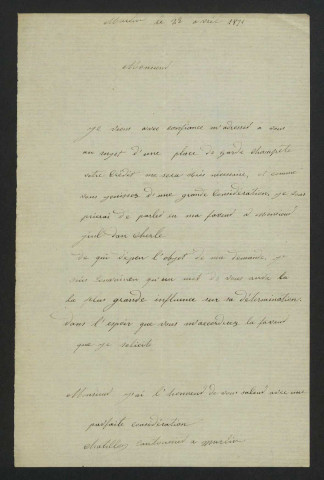 le 28 avril 1871
Monsieur
je viens avec confiance m'adresser a vous
au sujet d'une place de garde champêtre
votre Crédit me sera très nécessaire, et comme
vous jouissez d'une grande Considération, je vous
prierai de parler en ma faveur a monsieur
de qui dépen l'objet de ma demande, je
suis convaincu qu'un mot de vous aura
la plus grande influence sur sa détermination
dans l'espoir que vous m'accorderez la faveur
que je solicite
Monsieur j'ai l'honneur de vous saluer avec une
parfaite considération
Chatillon cantonnier a